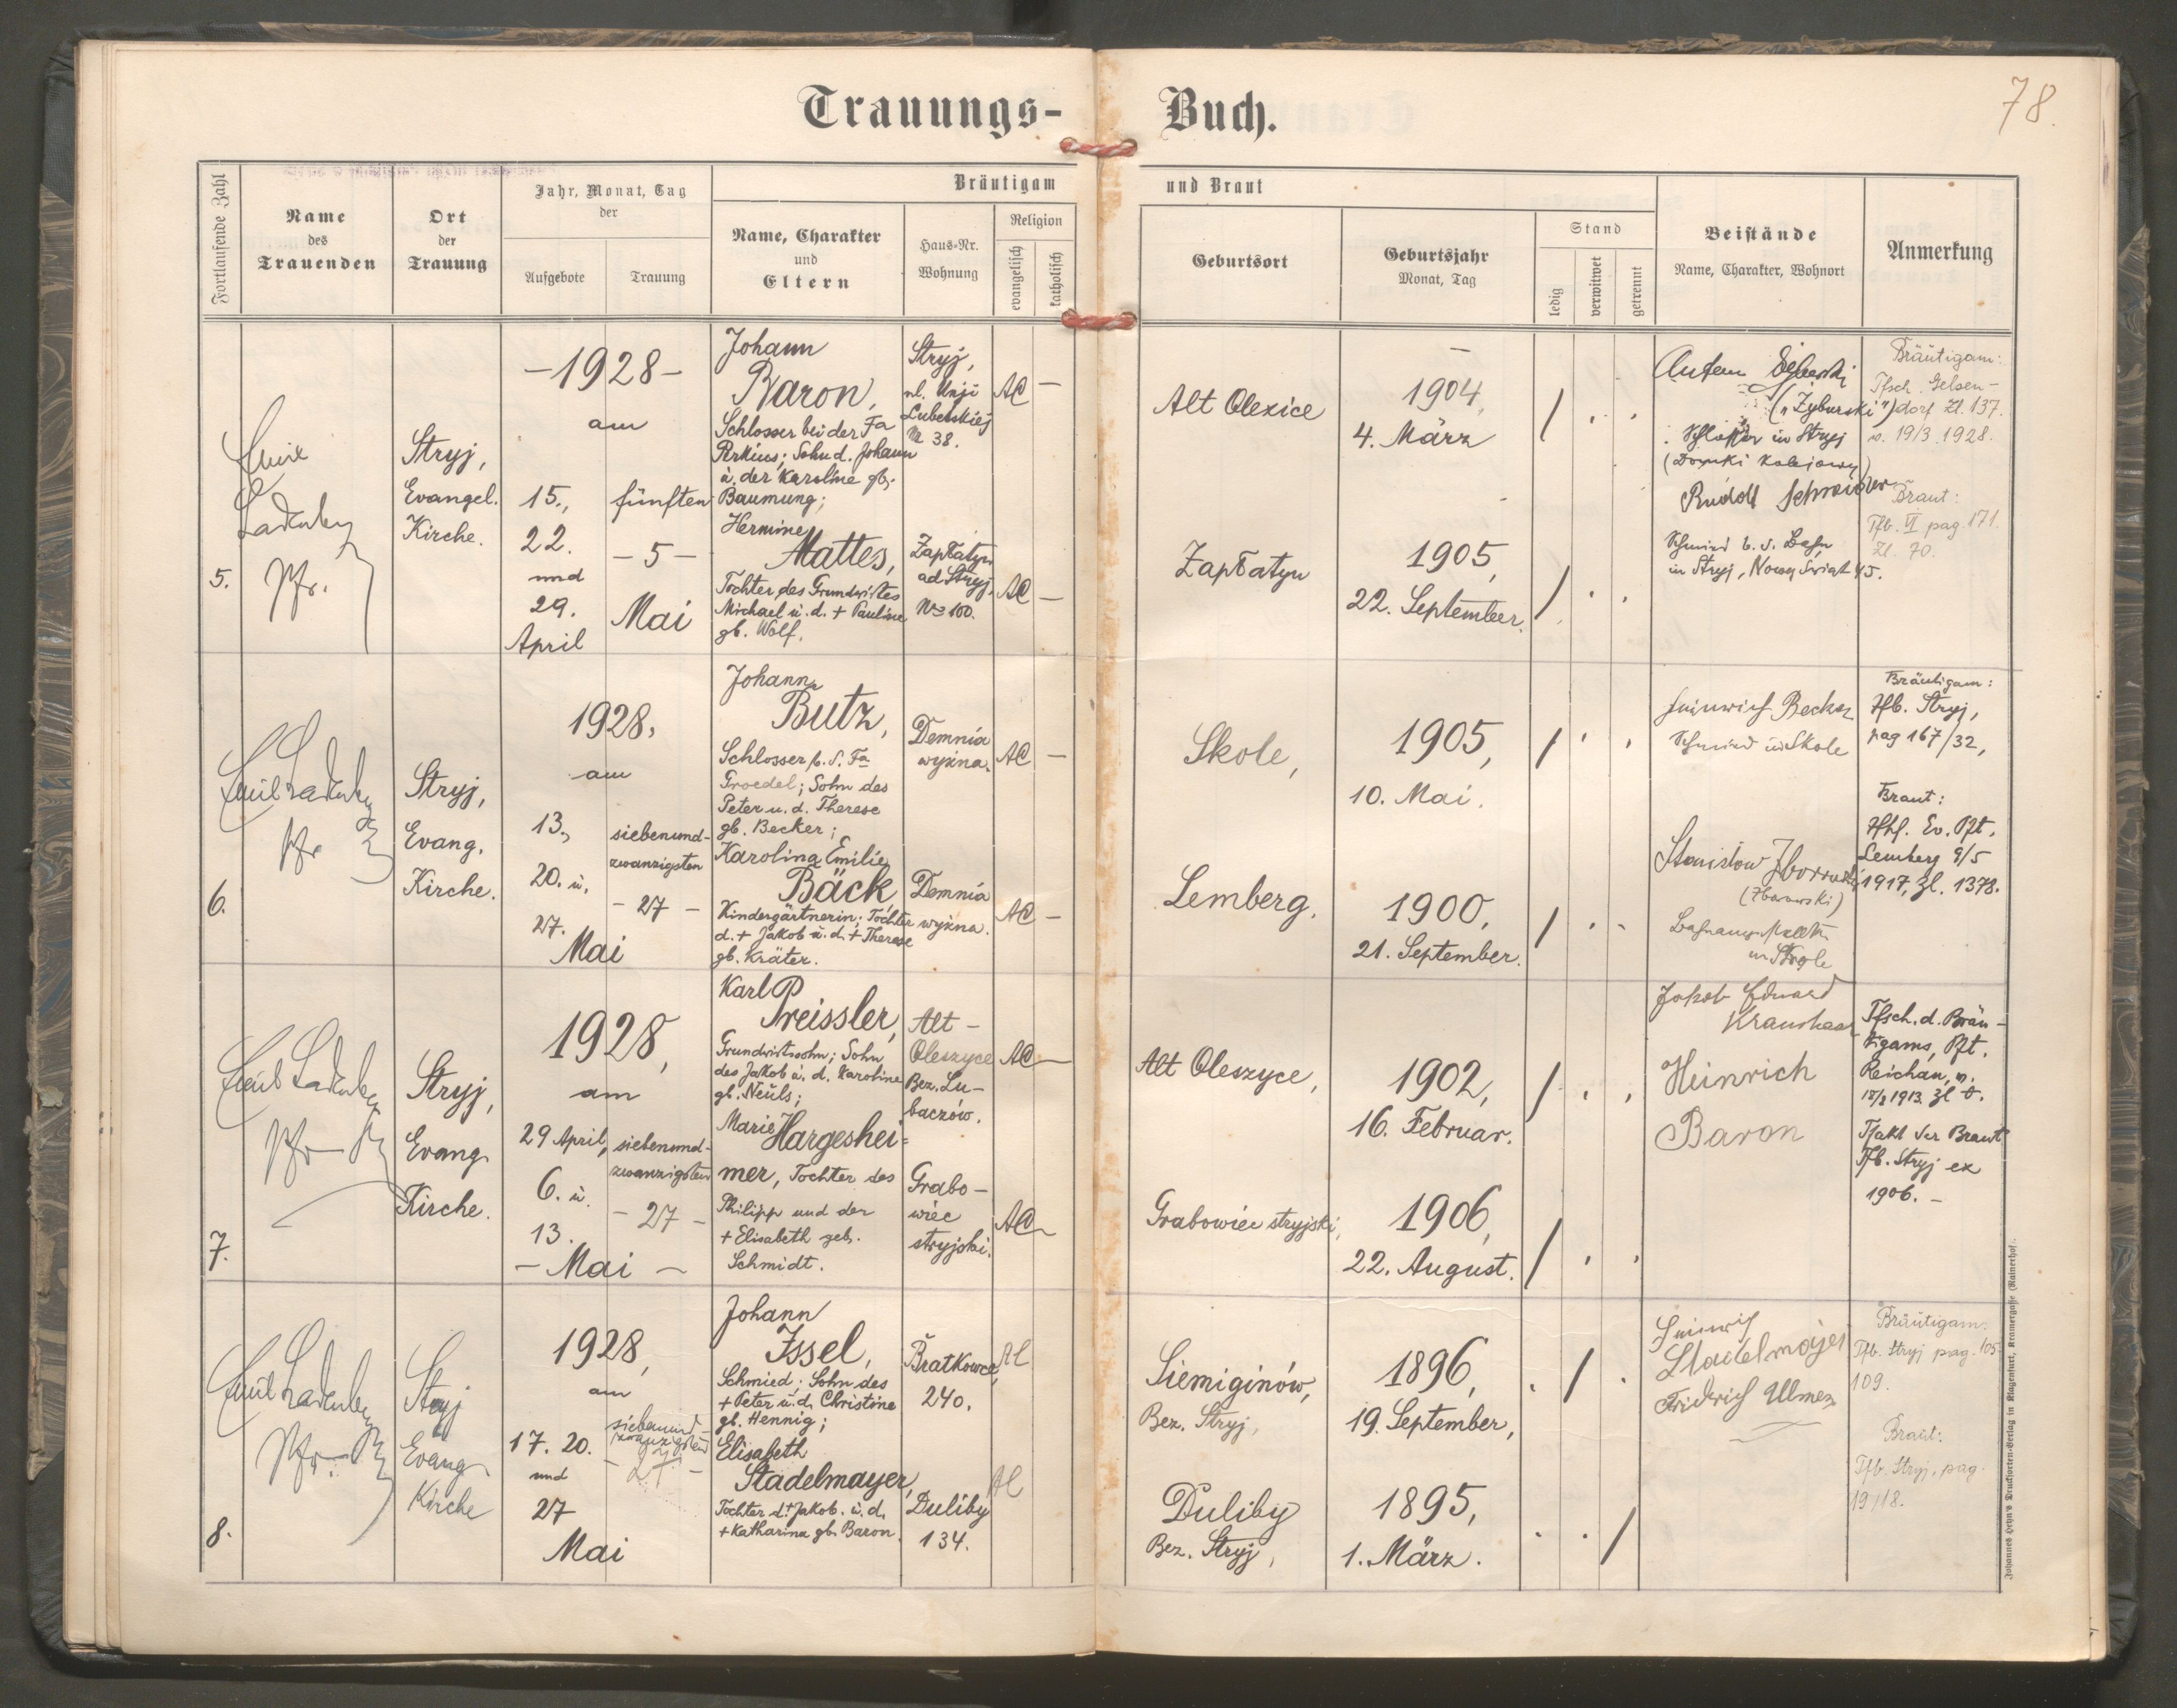 78.
Trauungs- Buch.
Fortlaufende Zahl
Name
des
Trauenden
Ort
der
Trauung
Jahr, Monat, Tag
der
Aufgebote
Trauung
Bräutigam und Braut
Name, Charakter
und
Eltern
Haus-Nr.
Wohnung
Religion
evangelisch
katholisch
Geburtsort
Geburtsjahr
Monat, Tag
Stand
ledig
verwitwet
getrennt
Beistände
Name, Charakter, Wohnort
Anmerkung
5.
Pfr.
Stryj,
Evangel.
Kirche.
-1928-
am
15.,
22.
und
29.
April
fünften
- 5 -
Mai
Johann
Baron,
Schlosser bei der Fa
Perkins; Sohn d. Johann
ü. der Karoline gb.
Baumung;
Stryj,
ul. Unji
Lubelskiej
Nr 38.
AC -
Hermine
Mattes,
Tochter des Grundwirtes
Michael ü. d. + Pauline
gb. Wolf.
Zapłatyn
ad Stryj.
No 100.
AC -
Alt Olexice
1904,
4. März
Zapłatyn
1905,
22. September.
("Zyburski")
Schlosser in Stryj
(Domki kolejowe)
Rudolf Schneider
Schmied b. d. Bahn
in Stryj, Nowy Swiat 45.
Bräutigam:
Tfsch. Gelsen-
dorf Zl. 137.
v. 19/3. 1928.
Braut:
Tfb. VI pag. 171.
Zl. 70.
6.
Emil Ladenberger
Pfr.
Stryj,
Evang.
Kirche.
1928,
am
13.,
20. ü.
27.
Mai
siebenund-
zwanzigsten
- 27 -
Johann
Butz,
Schlosser b. d. Fa
Groedel; Sohn des
Peter u. d. Therese
gb. Becker;
Demnia
wyżna.
AC -
Karolina Emilie
Bäck,
Kindergärtnerin; Tochter
d. + Jakob ü. d. + Therese
gb. Kräter.
Demnia
wyżna.
AC -
Skole,
1905,
10. Mai.
Lemberg,
1900,
21. September.
Heinrich Becker
Schmied in Skole
Stanisław
(Zborowski)
in Skole
Bräutigam:
Tfb. Stryj,
pag 167/32,
Braut:
Ev. Pft.
Lemberg 9/5
1917, Zl. 1378.
7.
Emil Ladenberger
Pfr.
Stryj,
Evang.
Kirche.
1928,
am
29 April,
6. ü.
13.
- Mai -
siebenund-
zwanzigsten
- 27 -
Karl
Preissler,
Grundwirtssohn; Sohn
des Jakob ü. d. Karoline
gb. Neüls;
Alt-
Oleszyce
Bez. Lu-
baczów.
AC -
Marie Hargeshei-
mer, Tochter des
Philipp und der
+ Elisabeth geb.
Schmidt.
Grabo-
wiec
stryjski.
AC
Alt Oleszyce,
1902,
16. Februar.
Grabowiec stryjski,
1906,
22. August.
Jakob Eduard
Kraushaar
Heinrich
Baron
Tfsch. d. Bräu-
tigams, Pft.
Reichau, v.
1913. Zl
Tfakt der Braut
Tfb. Stryj ex
1906. -
8.
Emil Ladenberger
Pfr.
Stryj
Evang.
Kirche
1928,
am
17. 20.
und
27
Mai
siebenund-
zwanzigsten
- 27 -
Johann
Issel,
Schmied; Sohn des
+ Peter u. d. Christine
gb. Hennig;
Bratkowce,
240.
AC
Elisabeth
Stadelmayer,
Tochter d. + Jakob. ü. d.
+ Katharina gb. Baron.
Duliby
134.
AC
Siemiginów,
Bez. Stryj,
1896,
19. September,
Duliby
Bez. Stryj,
1895,
1. März.
Heinrich
Stadelmayer
Friedrich Ulmer
Bräutigam:
Tfb. Stryj pag. 105
109.
Braut:
Tfb. Stryj, pag.
19/18.
Johannes Heyn's Drucksorten-Verlag in Klagenfurt, Kramergasse (Rainerhof).